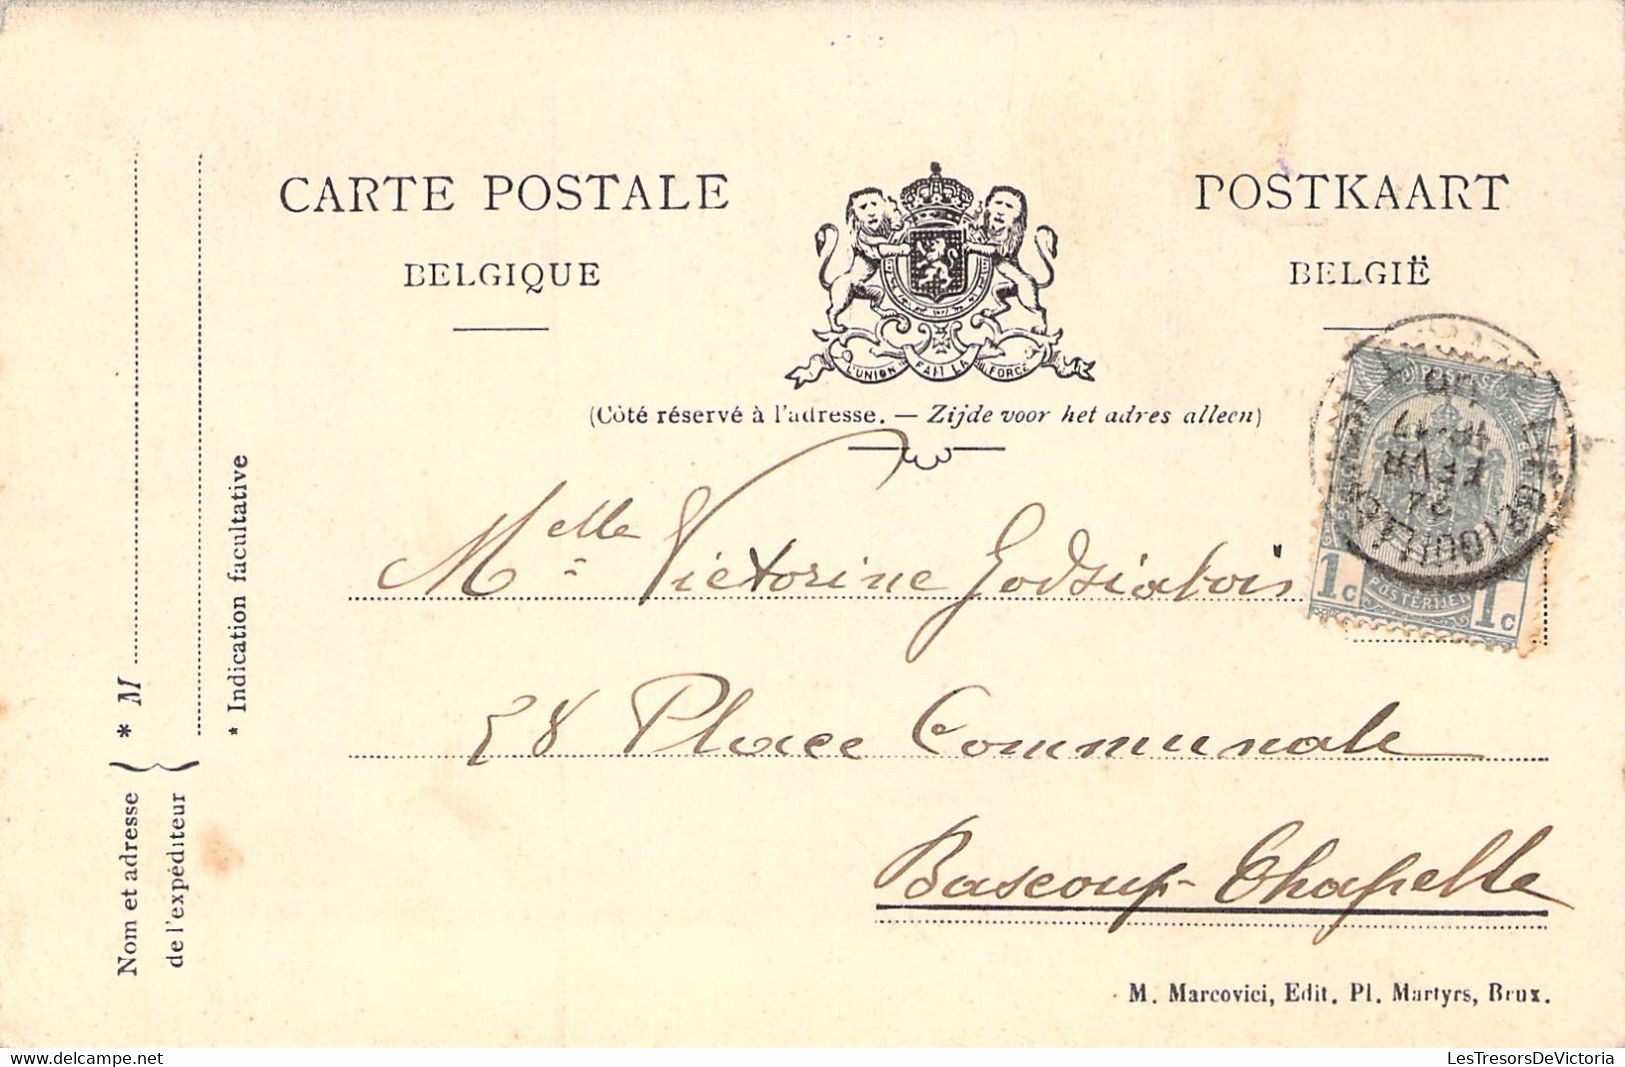 CARTE POSTALE
BELGIQUE
POSTKAART
BELGIË
L'UNION FAIT LA FORCE
(Côté réservé à l'adresse. — Zijde voor het adres alleen)
Melle Victorine Godsiabois
28 Place Communale
Bascoup-Chapelle
1c POSTERIJEN 1c
* M
Nom et adresse
de l'expéditeur
* Indication facultative
M. Marcovici, Edit. Pl. Martyrs, Brux.
LesTresorsDeVictoria